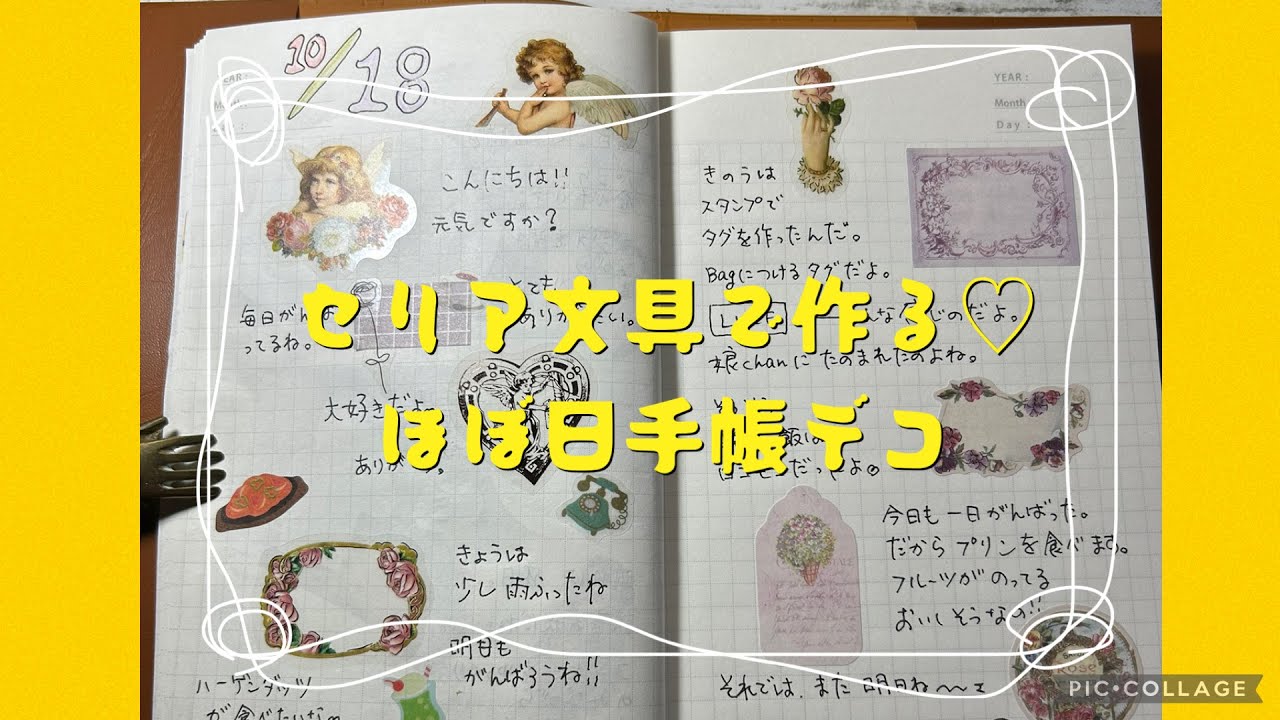 10/18
YEAR :
こんにちは!!
元気ですか?
毎日がんば
ってるね。
とても
ありがたい。
大好きだよ
ありが
きょうは
少し雨ふったね
明日も
がんばろうね!!
ハーゲンダッツ
が食べたいな
YEAR :
Month
Day :
きのうは
スタンプで
タグを作ったんだ。
Bagにつけるタグだよ。
のだよ。
娘chanにたのまれたのよね。
今日も一日がんばった。
だからプリンを食べます。
フルーツがのってる
おいしそうなの!!
それでは、また明日ね〜〜
セリア文具で作る♡
ほぼ日手帳デコ
PIC•COLLAGE